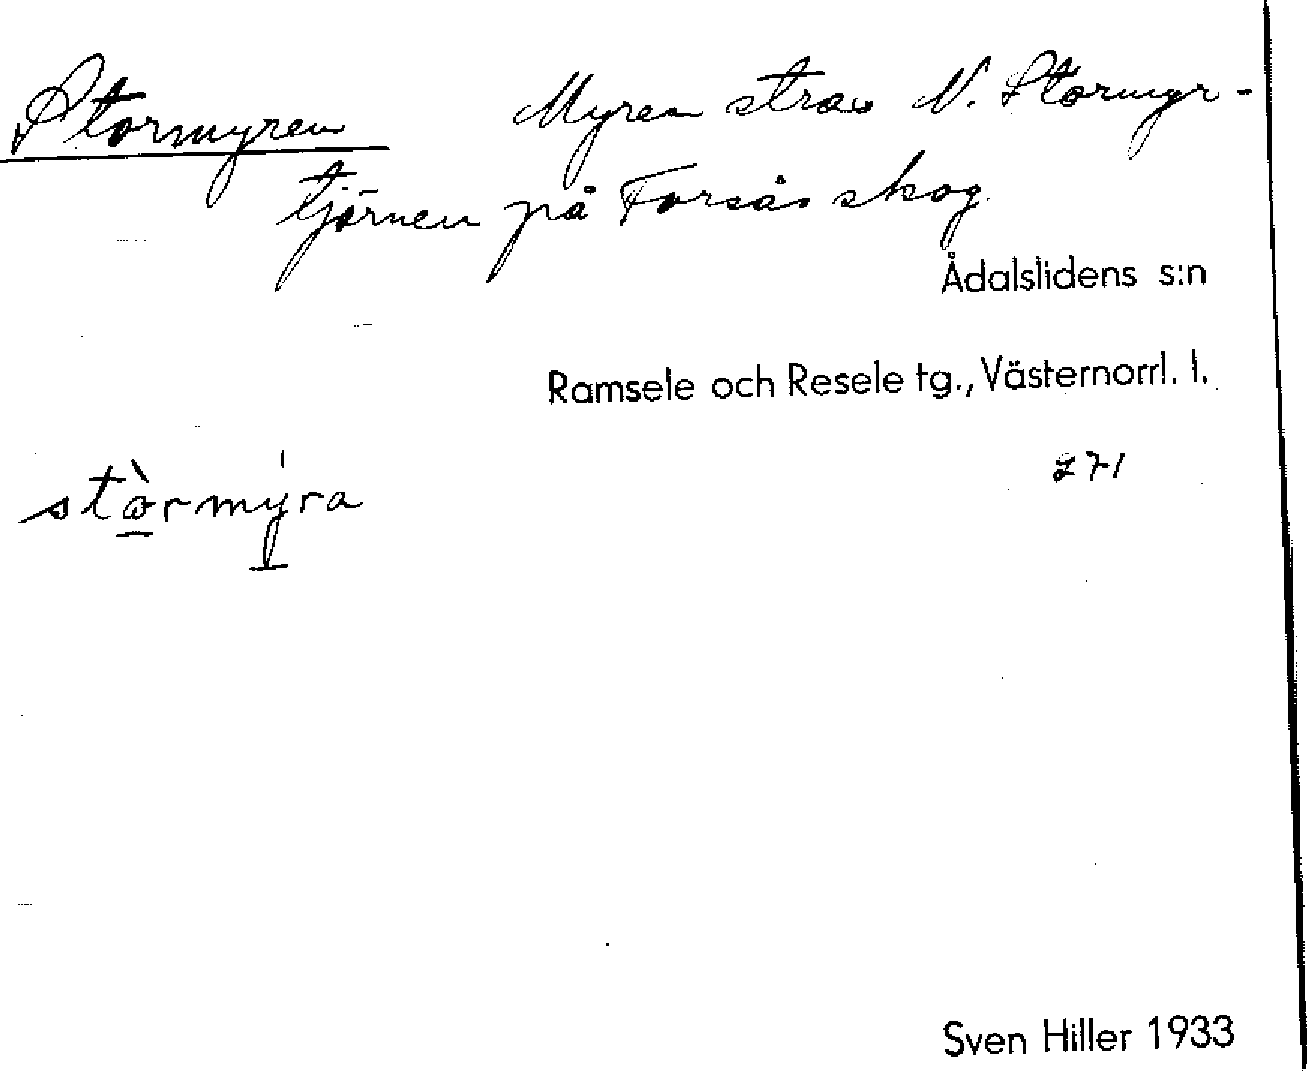 Stormyren Myren strax N. Stormyr-
tjärnen på Forsås skog.
Ådalslidens s:n
Ramsele och Resele tg., Västernorrl. l.
271
stò̱rmý̱ra
Sven Hiller 1933